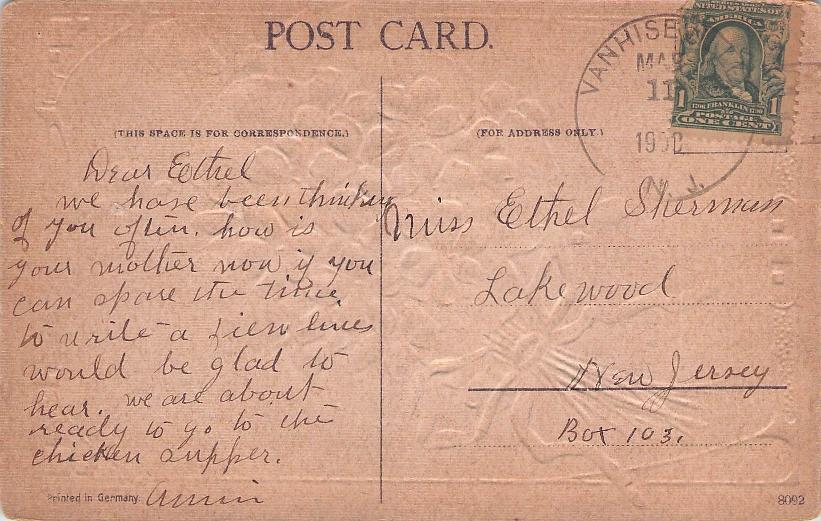 POST CARD.
VANHISE
MAR
11
N. J.
UNITED STATES OF
AMERICA
1 FRANKLIN 1
POSTAGE
ONE CENT
(THIS SPACE IS FOR CORRESPONDENCE.)
(FOR ADDRESS ONLY.)
Dear Eethel
we have been thinking
of you often. how is
your mother now if you
can spare the time
to write a fiew lines
would be glad to
hear. we are about
ready to go to the
chicken supper.
Miss Ethel Sherman
Lakewood
New Jersey
Box 103.
Printed in Germany.
8092